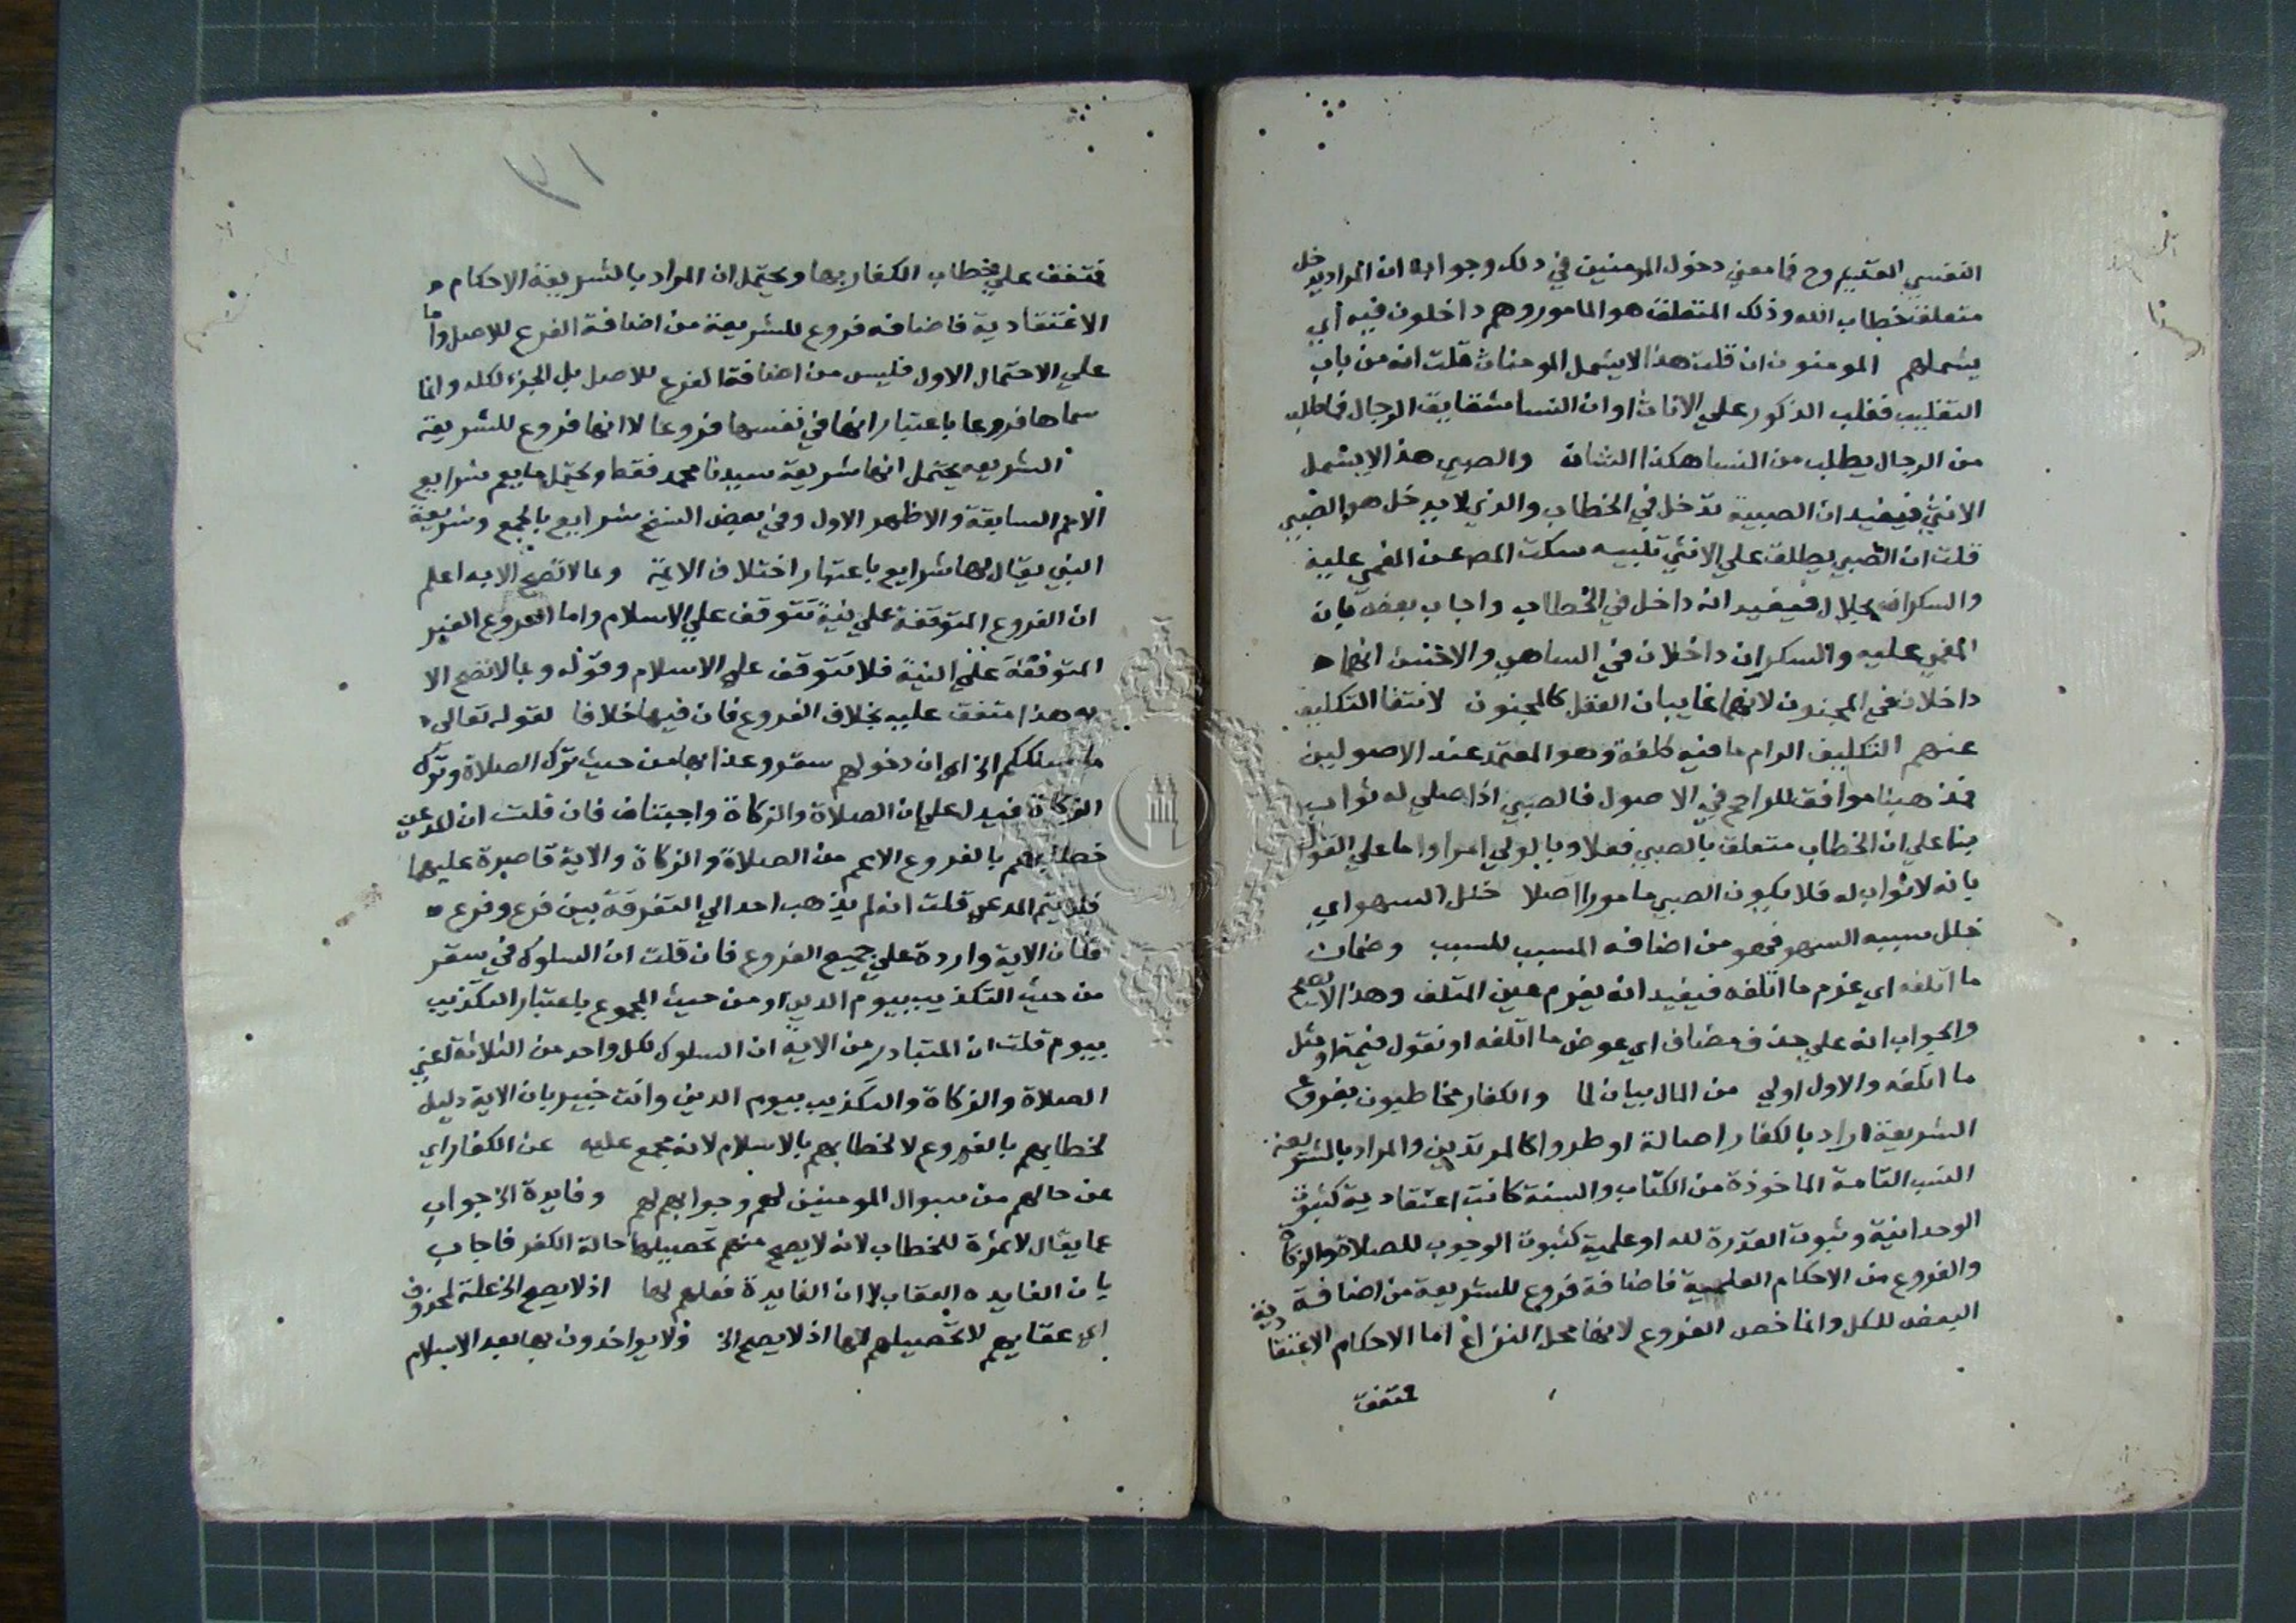 النفسي القديم وح فما معني دخول المومنين في ذلك وجوابه ان المراد يدخل
متعلق خطاب الله وذلك المتعلق هو المامور وهم داخلون فيه أي
يشملهم المومنون ان قلت هذا لا يشمل المومنات قلت انه من باب
التغليب فغلب الذكور علي الاناث او ان النسا شقايق الرجال فما طلب
من الرجال يطلب من النسا هكذا الشان والصبي هذا لا يشمل
الانثي فيفيد ان الصبية تدخل في الخطاب والذي لا يدخل هو الصبي
قلت ان الصبي يطلق علي الانثي تلبيه سكت المص عن المغمي عليه
والسكران بحلال فيفيد انه داخل في الخطاب واجاب بعضه بان
المغمي عليه والسكران داخلان في الساهي والاحسن انهما
داخلان في المجنون لانهما غايبان العقل كالمجنون لانتفا التكليف
عنهم التكليف الرام ما فيه كلفة وهو المعتمد عند الاصوليين
فمذهبنا موافق للراجح في الاصول فالصبي اذا صلي له ثواب
بنا علي ان الخطاب متعلق بالصبي فعلا وبالولي امرا واما علي القول
بانه لا ثواب له فلا يكون الصبي مامورا اصلا خلل السهو اي
خلل سببه السهو فهو من اضافه المسبب للسبب وضمان
ما اتلفه اي غرم ما اتلفه فيفيد انه يغرم عين المتلف وهذا لا يصح
والجواب انه علي حذف مضاف اي عوض ما اتلفه او نقول قيمة او مثل
ما اتلفه والاول اولي من المال بيان لما والكفار مخاطبون بفروع
الشريعة اراد بالكفار اصالة او طروا كالمرتدين والمراد بالشريعة
النسب التامة الماخوذة من الكتاب والسنة كانت اعتقادية كثبوت
الوحدانية وثبوت القدرة لله او علمية كثبوت الوجوب للصلاة والزكاة
والفروع من الاحكام العلمية فاضافة فروع للشريعة من اضافة
البعض للكل وانما خص الفروع لانها محل النزاع اما الاحكام الاعتقادية
متفق
٣١
فمتفق علي خطاب الكفار بها ويحتمل ان المراد بالشريعة الاحكام
الاعتقادية فاضافه فروع للشريعة من اضافة الفرع للاصل واما
علي الاحتمال الاول فليس من اضافة الفرع للاصل بل الجزء لكله وانما
سماها فروعا باعتبار انها في نفسها فروعا لا انها فروع للشريعة
الشريعه يحتمل انها شريعة سيدنا محمد فقط ويحتمل ما يعم شرايع
الامم السابقة والاظهر الاول وفي بعض النسخ شرايع بالجمع وشريعة
النبي يقال لها شرايع باعتبار اختلاف الايمة وما لا تصح الا به اعلم
ان الفروع المتوقفة علي نية تتوقف علي الاسلام واما الفروع الغير
المتوقفة علي النية فلا تتوقف علي الاسلام وقوله وما لا تصح الا
به هذا متفق عليه بخلاف الفروع فان فيها خلافا لقوله تعالى
ما سلككم الخ اي ان دخولهم سقر وعذابها من حيث ترك الصلاة وترك
الزكاة فيدل علي ان الصلاة والزكاة واجبتان فان قلت ان المدعي
خطابهم بالفروع الاعم من الصلاة والزكاة والاية قاصرة عليهما
فلم يتم المدعي قلت انه لم يذهب احد الي التفرقة بين فرع وفرع
فكان الاية واردة علي جميع الفروع فان قلت ان السلوك في سقر
من حيث التكذيب بيوم الدين او من حيث المجموع باعتبار التكذيب
بيوم قلت ان المتبادر من الاية ان السلوك لكل واحد من الثلاثة اعني
الصلاة والزكاة والتكذيب بيوم الدين وانت خبير بان الاية دليل
لخطابهم بالفروع لا لخطابهم بالاسلام لانه مجمع عليه عن الكفار اي
عن حالهم من سوال المومنين لهم وجوابهم لهم وفايدة الخ جواب
عما يقال لا ثمرة للخطاب لانه لا يصح منهم تحصيلها حالة الكفر فاجاب
بان الفايده العقاب لا ان الفايدة فعلهم لها اذ لا يصح الخ علة لمحذوف
اي عقابهم لا تحصيلهم لها اذ لا يصح الخ ولا يواخذون بها بعد الاسلام